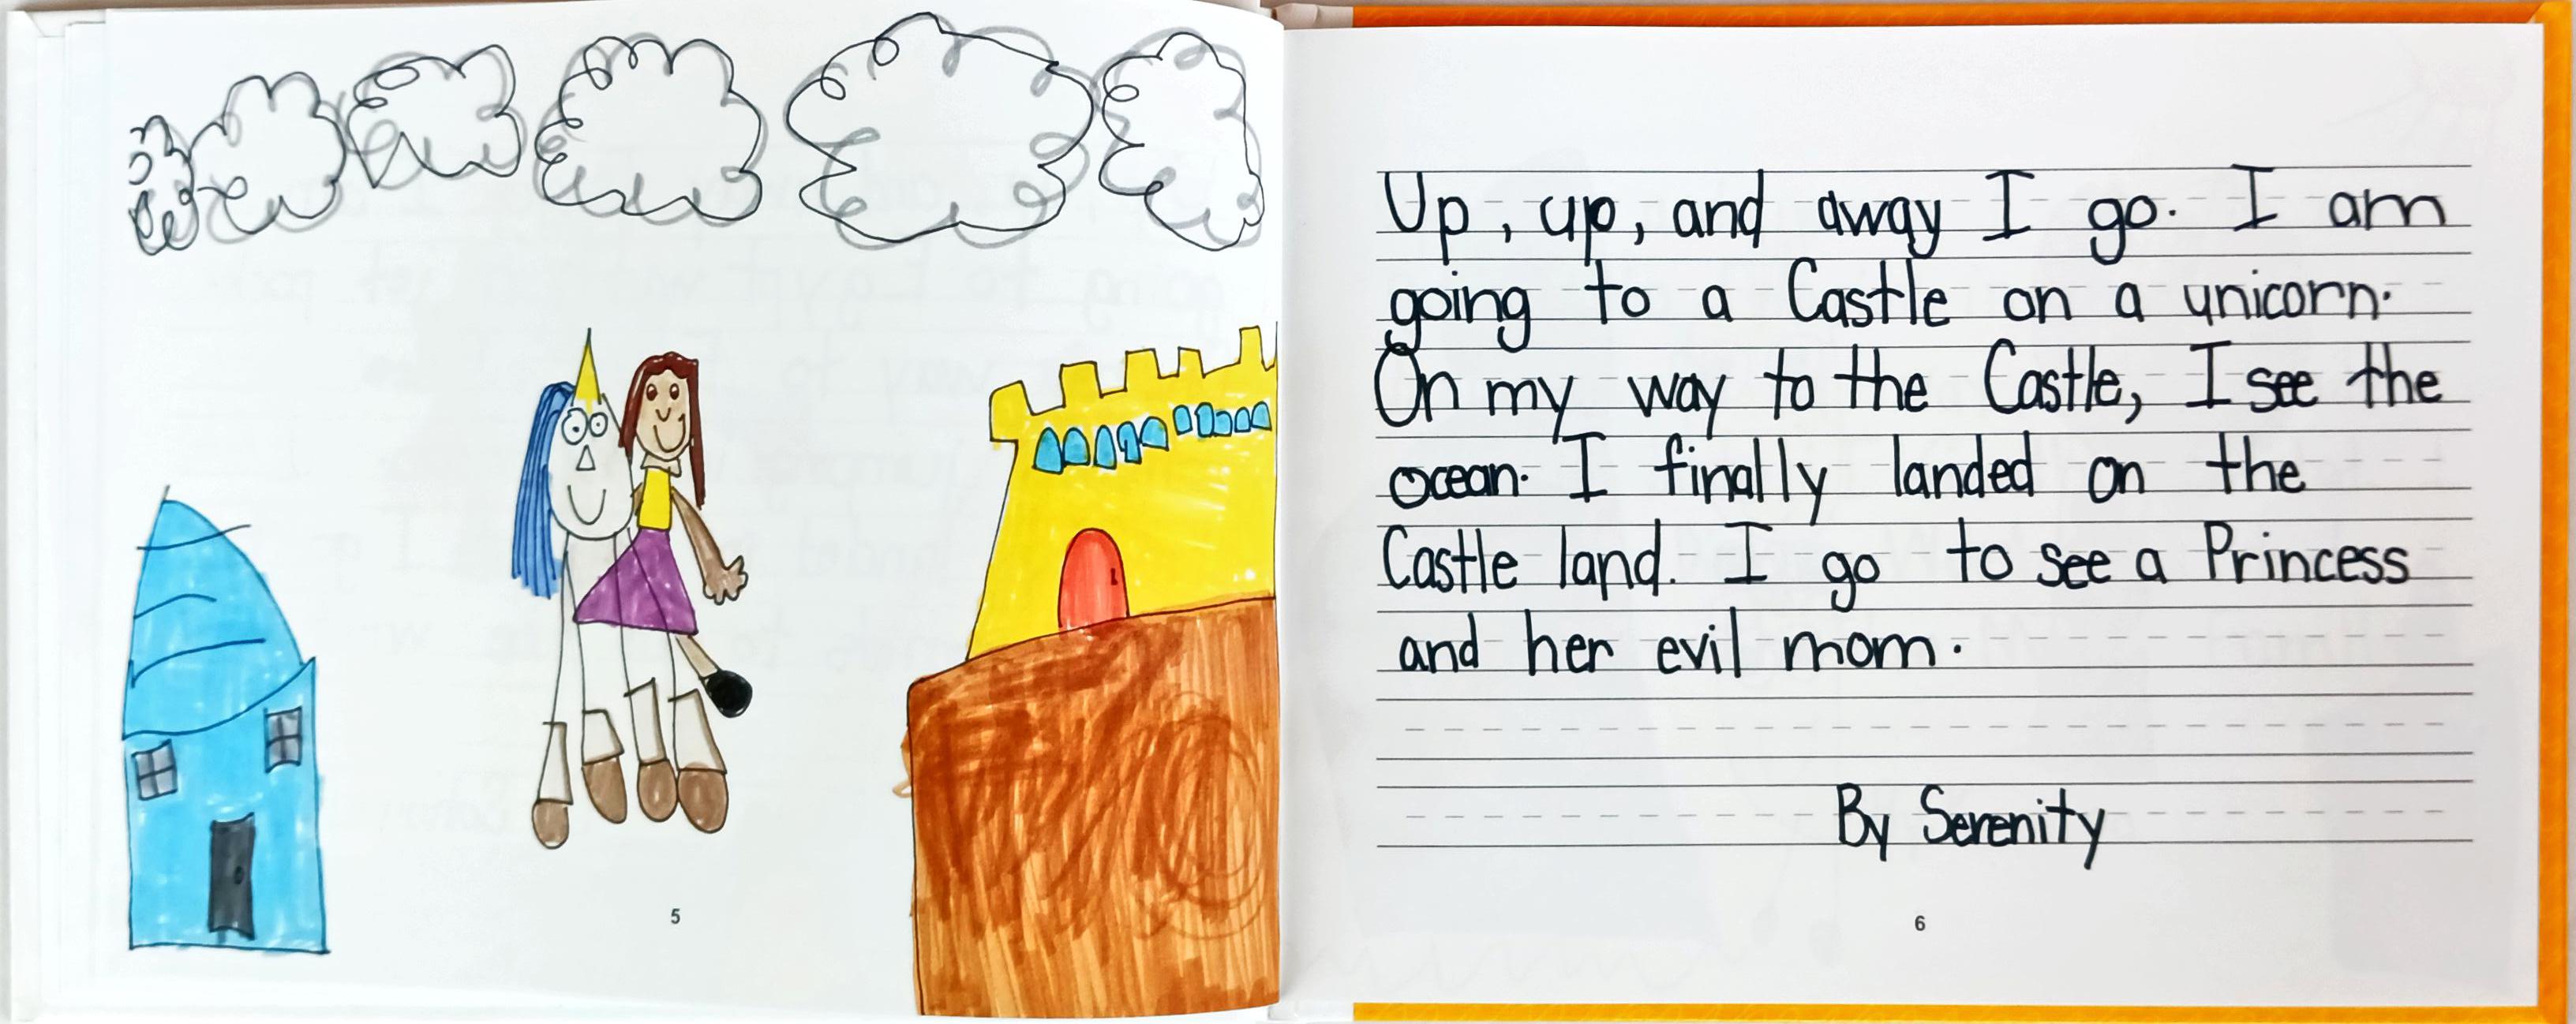 5
Up, up, and away I go. I am
going to a Castle on a unicorn.
On my way to the Castle, I see the
ocean. I finally landed on the
Castle land. I go to see a Princess
and her evil mom.
By Serenity
6